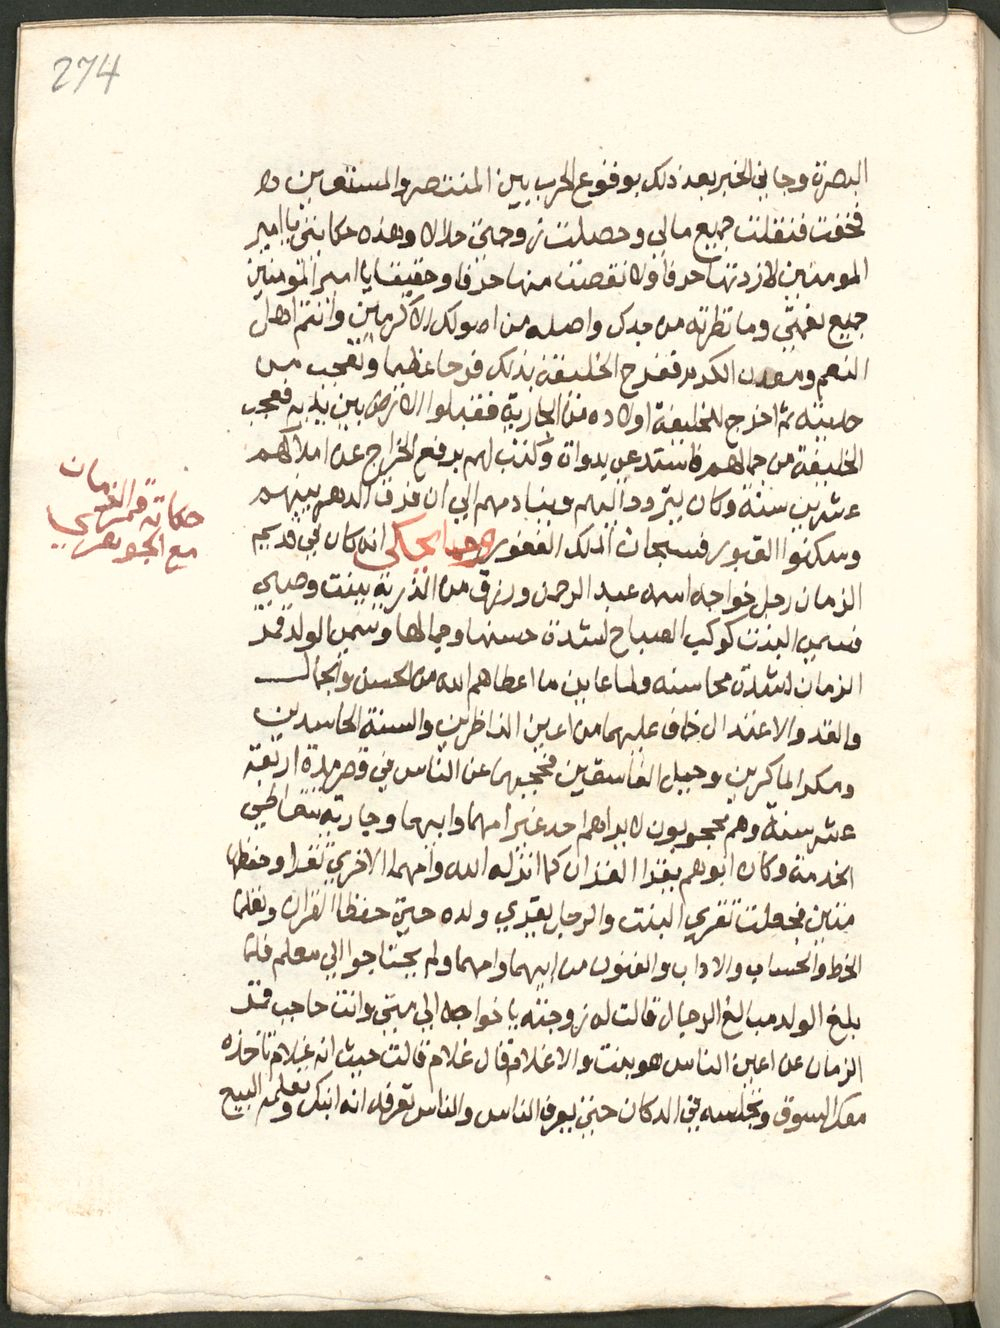 274
البصرة وجاني الخبر بعد ذلك بوقوع الحرب بين المنتصر والمستعين
فخفت فنقلت جميع مالي وحصلت زوجتي حلالا وهذه حكايتي يا امير
المومنين لا زدتها حرفا ولا نقصت منها حرفا وحقيقا يا امير المومنين
جميع نعمتي وما نظرته من جدك واصله من اصولك الاكرمين وانتم اهل
النعم ومعدن الكرم ففرح الخليفة بذلك فرحا عظيما وتعجب من
حديثه ثم اخرج للخليفة اولاده من الجارية فقبلوا الارض بين يديه فعجب
الخليفة من جمالهم فاستدعي بدواة وكتب لهم برفع الخراج عن املاكهم
عشرين سنة وكان يتردد اليهم وينادمهم الي ان فرق الدهر بينهم
وسكنوا القبور فسبحان الملك الغفور ومما يحكي انه كان في قديم
حكاية قمر الزمان
مع الجوهري
الزمان رجل خواجه اسمه عبد الرحمن ورزق من الذرية ببنت وصبي
فسمي البنت كوكب الصباح لشدة حسنها وجمالها وسمي الولد قمر
الزمان لشدة محاسنه ولما عاين ما اعطاهم الله من الحسن والجمال
والقد والاعتدال خاف عليهما من اعين الناظرين والسنة الحاسدين
ومكر الماكرين وحيل الفاسقين فحجبهما عن الناس في قصر مدة اربعة
عشر سنة وهم محجوبون لا يراهم احد غير امهما وابيهما وجارية تتعاطي
الخدمة وكان ابوهم يقرا القران كما انزله الله وامهما الاخري تقرا وحفظها
متين فجعلت تقري البنت والرجل يقري ولده حتي حفظا القران وتعلما
الخط والحساب والاداب والفنون من ابيهما وامهما ولم يحتاجوا الي معلم فلما
بلغ الولد مبالغ الرجال قالت له زوجته يا خواجه الي متي وانت حاجب قمر
الزمان عن اعين الناس هو بنت والا غلام قال غلام قالت حيث انه غلام تاخذه
معك السوق وتجلسه في الدكان حتي يعرف الناس والناس تعرفه انه ابنك وتعلمه البيع